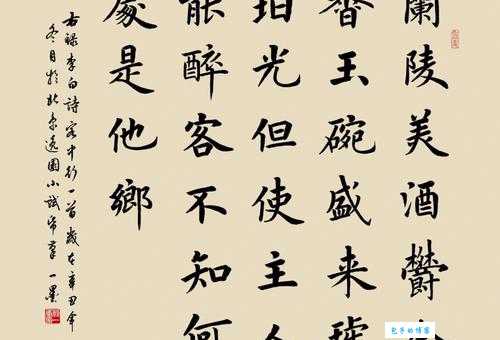 蘭陵美酒鬱
香玉碗盛来琥
珀光但使主人
能醉客不知何
處是他鄉
右録李白詩客中行一首歲在辛丑年
冬月於北京遠園小 一墨
包子的博客